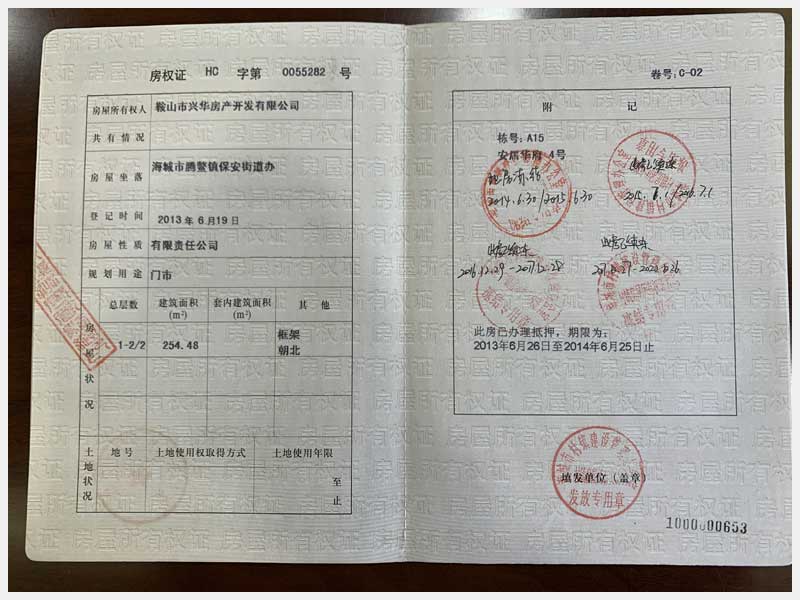 房权证 HC 字第 0055282 号
房屋所有权人 鞍山市兴华房产开发有限公司
共有情况
房屋坐落 海城市腾鳌镇保安街道办
登记时间 2013年6月19日
房屋性质 有限责任公司
规划用途 门市
房屋状况
总层数 建筑面积(m²) 套内建筑面积(m²) 其他
1-2/2 254.48 框架
朝北
土地状况
地号 土地使用权取得方式 土地使用年限
至
止
卷号:C-02
附记
栋号:A15
安居华府 4号
2014.6.30/2015.6.30
2016.12.29-2017.12.28
此房已办理抵押,期限为:
2013年6月26日至2014年6月25日止
填发单位(盖章)
发放专用章
1000000653